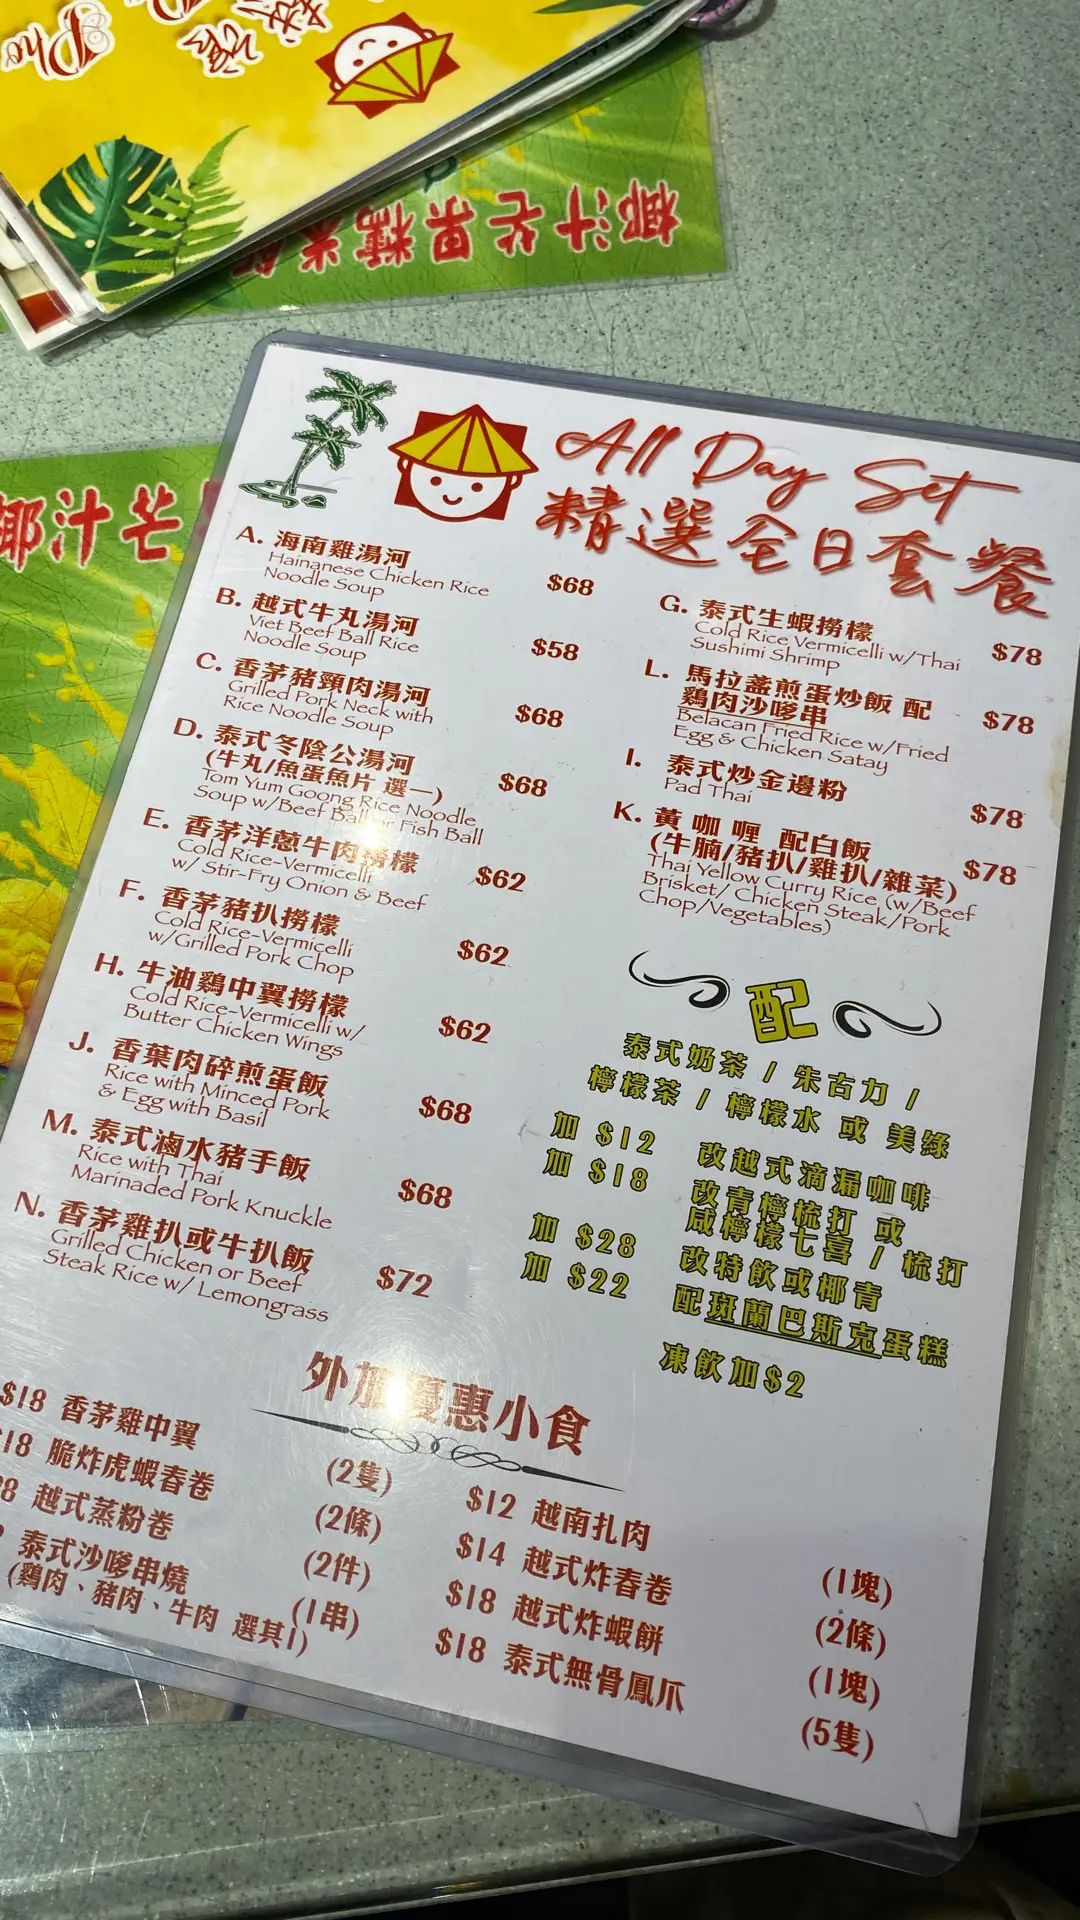 Pho
椰汁芒果糯米飯
椰汁芒
All Day Set
精選全日套餐
A. 海南雞湯河 $68
Hainanese Chicken Rice
Noodle Soup
B. 越式牛丸湯河 $58
Viet Beef Ball Rice
Noodle Soup
C. 香茅豬頸肉湯河 $68
Grilled Pork Neck with
Rice Noodle Soup
D. 泰式冬陰公湯河
(牛丸/魚蛋魚片 選一) $68
Tom Yum Goong Rice Noodle
Soup w/Beef Ball or Fish Ball
E. 香茅洋蔥牛肉撈檬 $62
Cold Rice-Vermicelli
w/ Stir-Fry Onion & Beef
F. 香茅豬扒撈檬 $62
Cold Rice-Vermicelli
w/Grilled Pork Chop
H. 牛油鷄中翼撈檬 $62
Cold Rice-Vermicelli w/
Butter Chicken Wings
J. 香葉肉碎煎蛋飯 $68
Rice with Minced Pork
& Egg with Basil
M. 泰式滷水豬手飯 $68
Rice with Thai
Marinaded Pork Knuckle
N. 香茅雞扒或牛扒飯 $72
Grilled Chicken or Beef
Steak Rice w/ Lemongrass
G. 泰式生蝦撈檬 $78
Cold Rice Vermicelli w/Thai
Sushimi Shrimp
L. 馬拉盞煎蛋炒飯 配 $78
鷄肉沙嗲串
Belacan Fried Rice w/Fried
Egg & Chicken Satay
I. 泰式炒金邊粉 $78
Pad Thai
K. 黃咖喱 配白飯 $78
(牛腩/豬扒/雞扒/雜菜)
Thai Yellow Curry Rice (w/Beef
Brisket/ Chicken Steak/Pork
Chop/Vegetables)
配
泰式奶茶 / 朱古力 /
檸檬茶 / 檸檬水 或 美綠
加 $12 改越式滴漏咖啡
加 $18 改青檸梳打 或
咸檸檬七喜 / 梳打
加 $28 改特飲或椰青
加 $22 配斑蘭巴斯克蛋糕
凍飲加$2
外加優惠小食
$18 香茅雞中翼 (2隻)
18 脆炸虎蝦春卷 (2條)
8 越式蒸粉卷 (2件)
泰式沙嗲串燒 (1串)
(鷄肉、豬肉、牛肉 選其1)
$12 越南扎肉 (1塊)
$14 越式炸春卷 (2條)
$18 越式炸蝦餅 (1塊)
$18 泰式無骨鳳爪 (5隻)